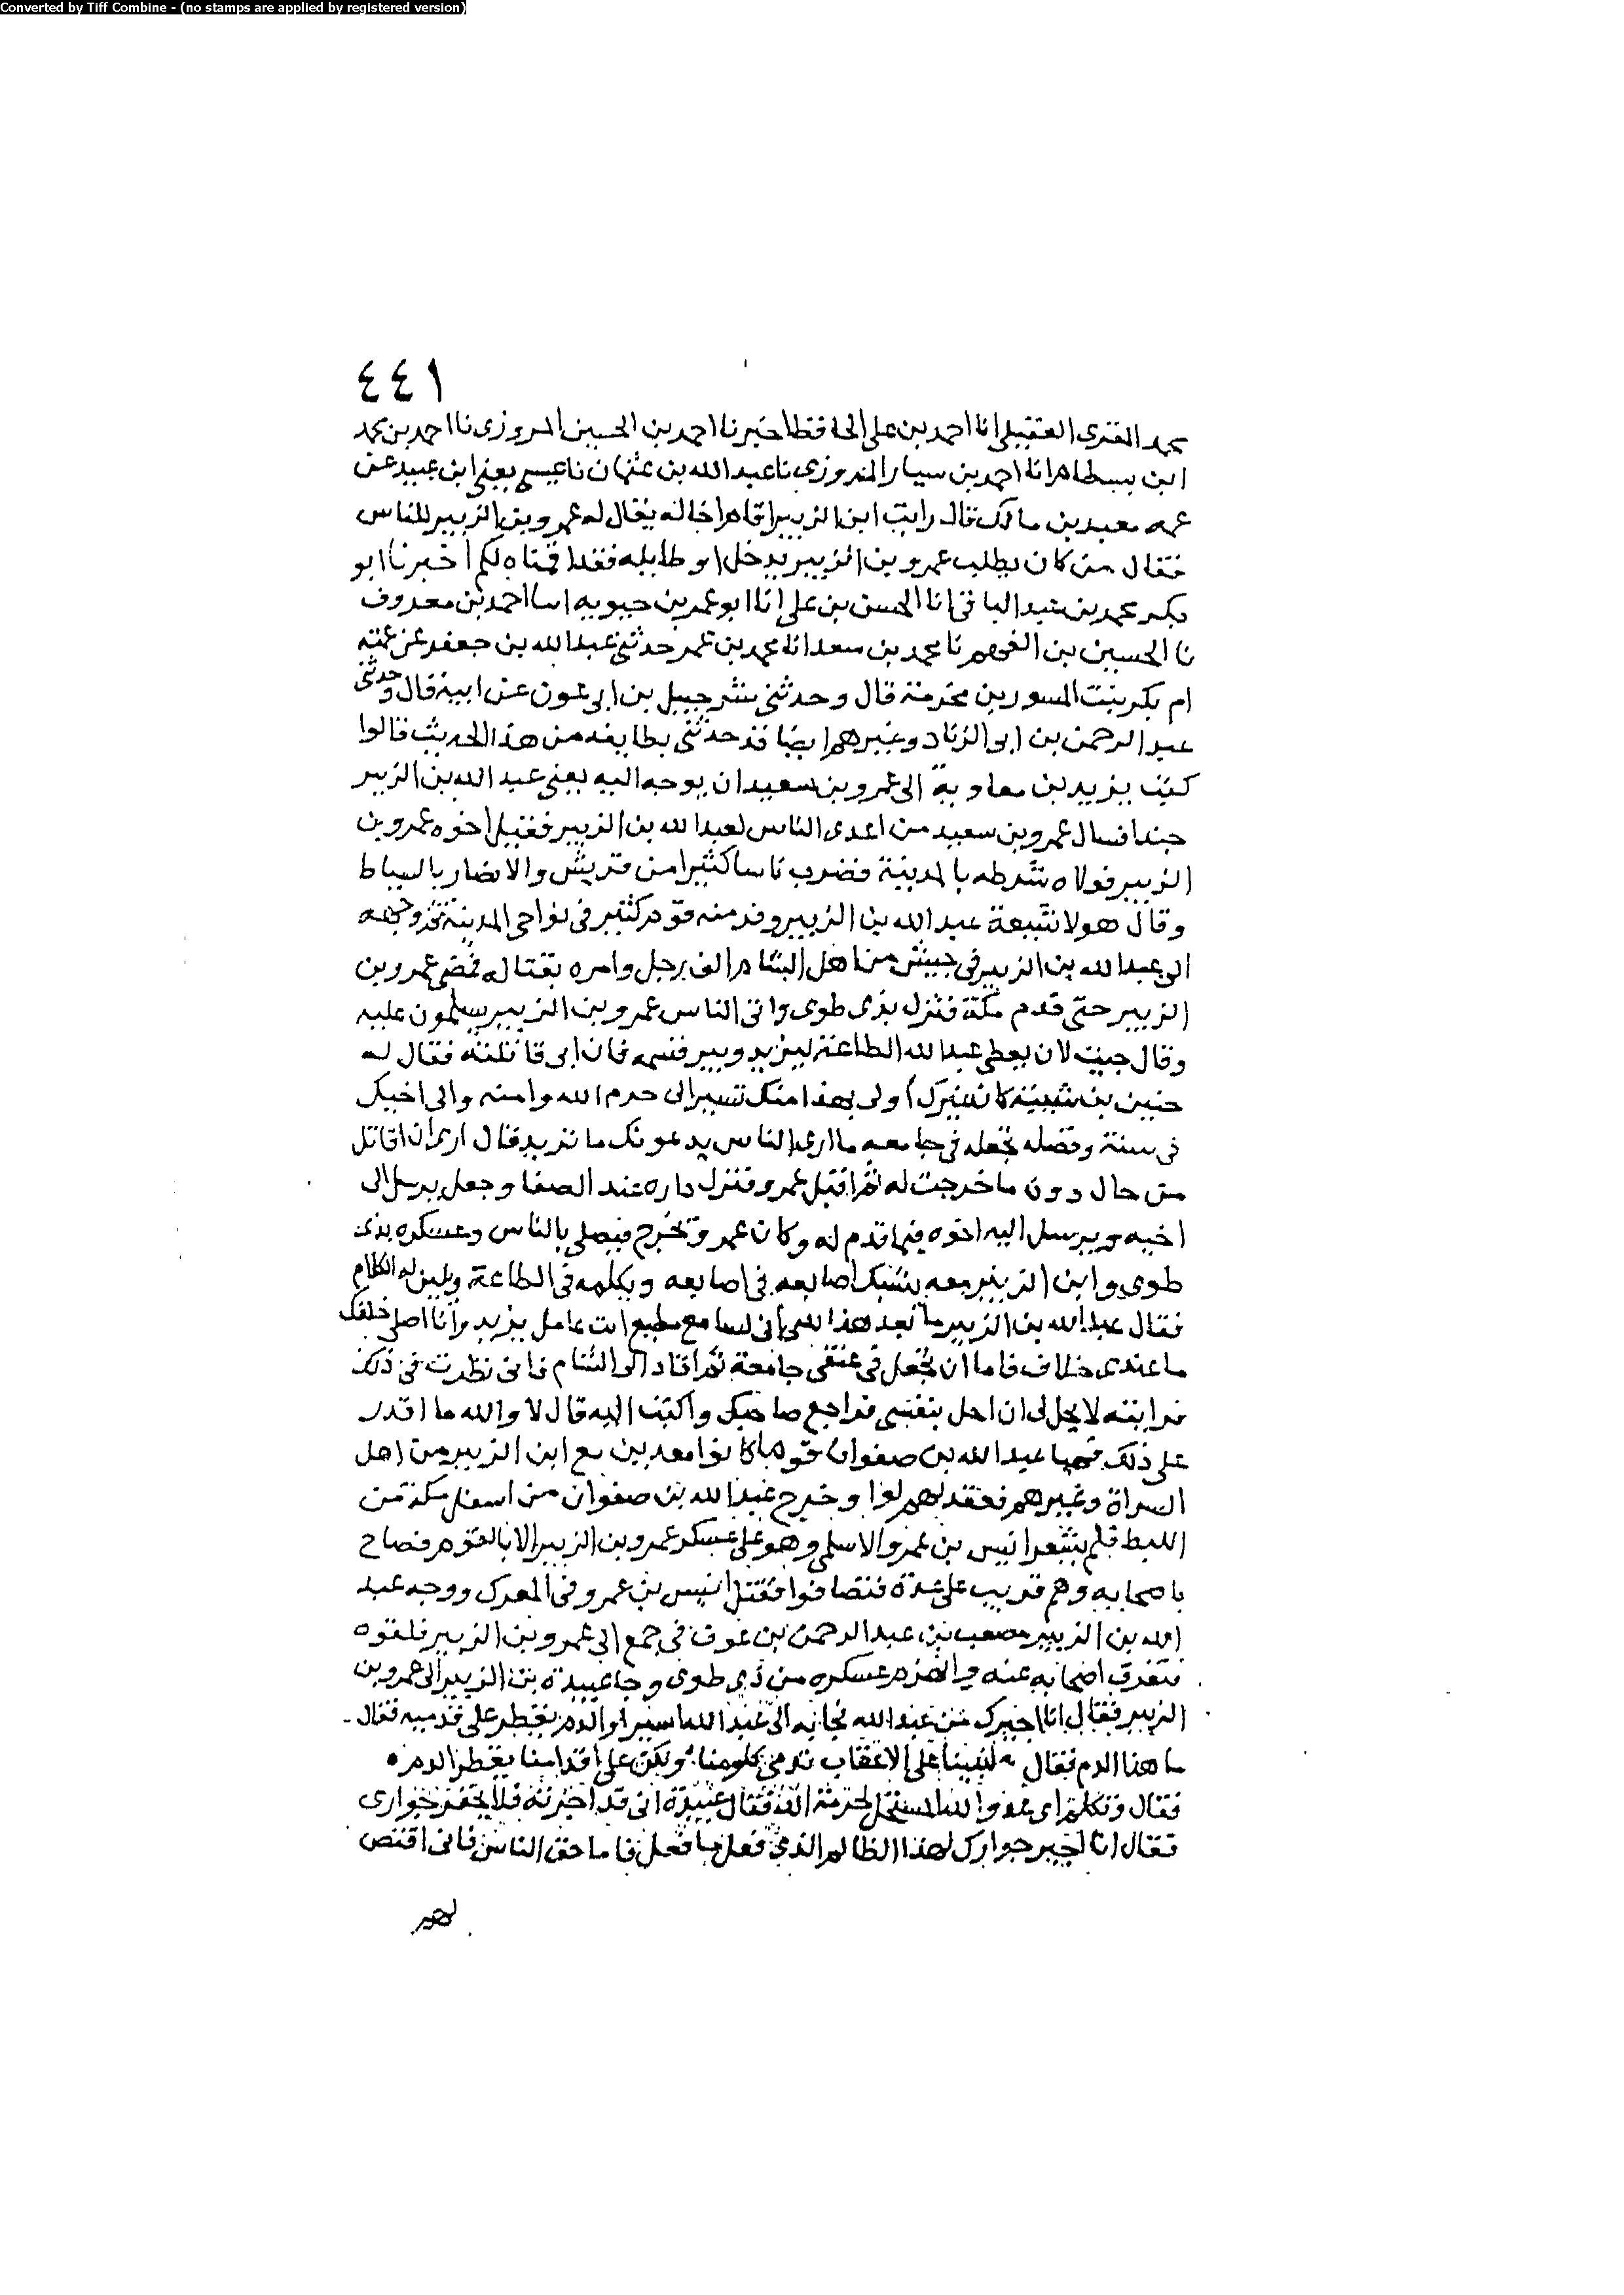 Converted by Tiff Combine - (no stamps are applied by registered version)
٤٤١
محمد المقرى العقيلى انا احمد بن على الحافظ اخبرنا احمد بن الحسين المروزى نا احمد بن محمد
ابن بسطام انا احمد بن سيار المروزى نا عبد الله بن عثمان نا عيسى يعنى ابن عبيد عن
عمه معبد بن مالك قال رايت ابن الزبير اقام اخا له يقال له عمرو بن الزبير للناس
فقال من كان يطلب عمرو بن الزبير بدخل او طايله فقد اقمناه لكم اخبرنا ابو
بكر محمد بن عبد الباقى انا الحسن بن على انا ابو عمر بن حيويه انا احمد بن معروف
نا الحسين بن الفهم نا محمد بن سعد انا محمد بن عمر حدثنى عبد الله بن جعفر عن عمته
ام بكر بنت المسور بن مخرمة قال وحدثنى شرحبيل بن ابى عون عن ابيه قال وحدثنى
عبد الرحمن بن ابى الزناد وغيرهم ايضا قد حدثنى بطايفه من هذا الحديث قالوا
كتب يزيد بن معاوية الى عمرو بن سعيد ان يوجه اليه يعنى عبد الله بن الزبير
جندا فسال عمرو بن سعيد من اعدى الناس لعبد الله بن الزبير فقيل اخوه عمرو بن
الزبير فولاه شرطه بالمدينة فضرب ناسا كثيرا من قريش والانصار بالسياط
وقال هولا شيعة عبد الله بن الزبير وفر منه قوم كثير فى نواحى المدينة ثم وجهه
الى عبد الله بن الزبير فى جيش من اهل الشام الف رجل وامره بقتاله فمضى عمرو بن
الزبير حتى قدم مكة فنزل بذى طوى واتى الناس عمرو بن الزبير يسلمون عليه
وقال جيت لان يعطى عبد الله الطاعة ليزيد ويبر قسمه فان ابى قاتلته فقال له
بن شيبة كان غيرك اولى بهذا منك تسير الى حرم الله وامنه والى اخيك
فى سنه وفضله تجعله فى جامعه ما ارى الناس يدعونك ما تريد قال ارى ان اقاتل
من حال دون ما خرجت له ثم اقبل عمرو فنزل داره عند الصفا وجعل يرسل الى
اخيه ويرسل اليه اخوه فيما قدم له وكان عمرو يخرج فيصلى بالناس وعسكره بذى
طوى وابن الزبير معه يشبك اصابعه فى اصابعه ويكلمه فى الطاعة ويلين له الكلام
فقال عبد الله بن الزبير ما بعد هذا شى انى لسامع مطيع انت عامل يزيد وانا اصلى خلفك
ما عندى خلاف فاما ان تجعل فى عنقى جامعة ثم اقاد الى الشام فانى نظرت فى ذلك
فرايته لا يحل لى ان احل بنفسى فراجع صاحبك واكتب اليه قال لا والله ما اقدر
على ذلك فهيا عبد الله بن صفوان قوما كانوا معدين مع ابن الزبير من اهل
السراة وغيرهم فعقد لهم لوا وخرج عبد الله بن صفوان من اسفل مكة من
الليط فلم يشعر انيس بن عمرو الاسلمى وهو على عسكر عمرو بن الزبير الا بالقوم فصاح
باصحابه وهم قريب على عدة فتصافوا فقتل انيس بن عمرو فى المعرك ووجه عبد
الله بن الزبير مصعب بن عبد الرحمن بن عوف فى جمع الى عمرو بن الزبير فلقوه
فتفرق اصحابه عنه وانهزم عسكره من ذى طوى وجا عبيدة بن الزبير الى عمرو بن
الزبير فقال انا اجيرك من عبد الله فجا به الى عبد الله اسيرا والدم يقطر على قدميه فقال
ما هذا الدم فقال * لسنا على الاعقاب تدمى كلومنا * ولكن على اقدامنا يقطر الدم *
فقال وتكلم اى عدو الله المستحل لحرمة الله فقال عبيدة انى قد اجرته فلا تخفر جوارى
فقال انا اجير جوارك لهذا الظالم الذى فعل ما فعل فاما حق الناس فانى اقتص
لهم